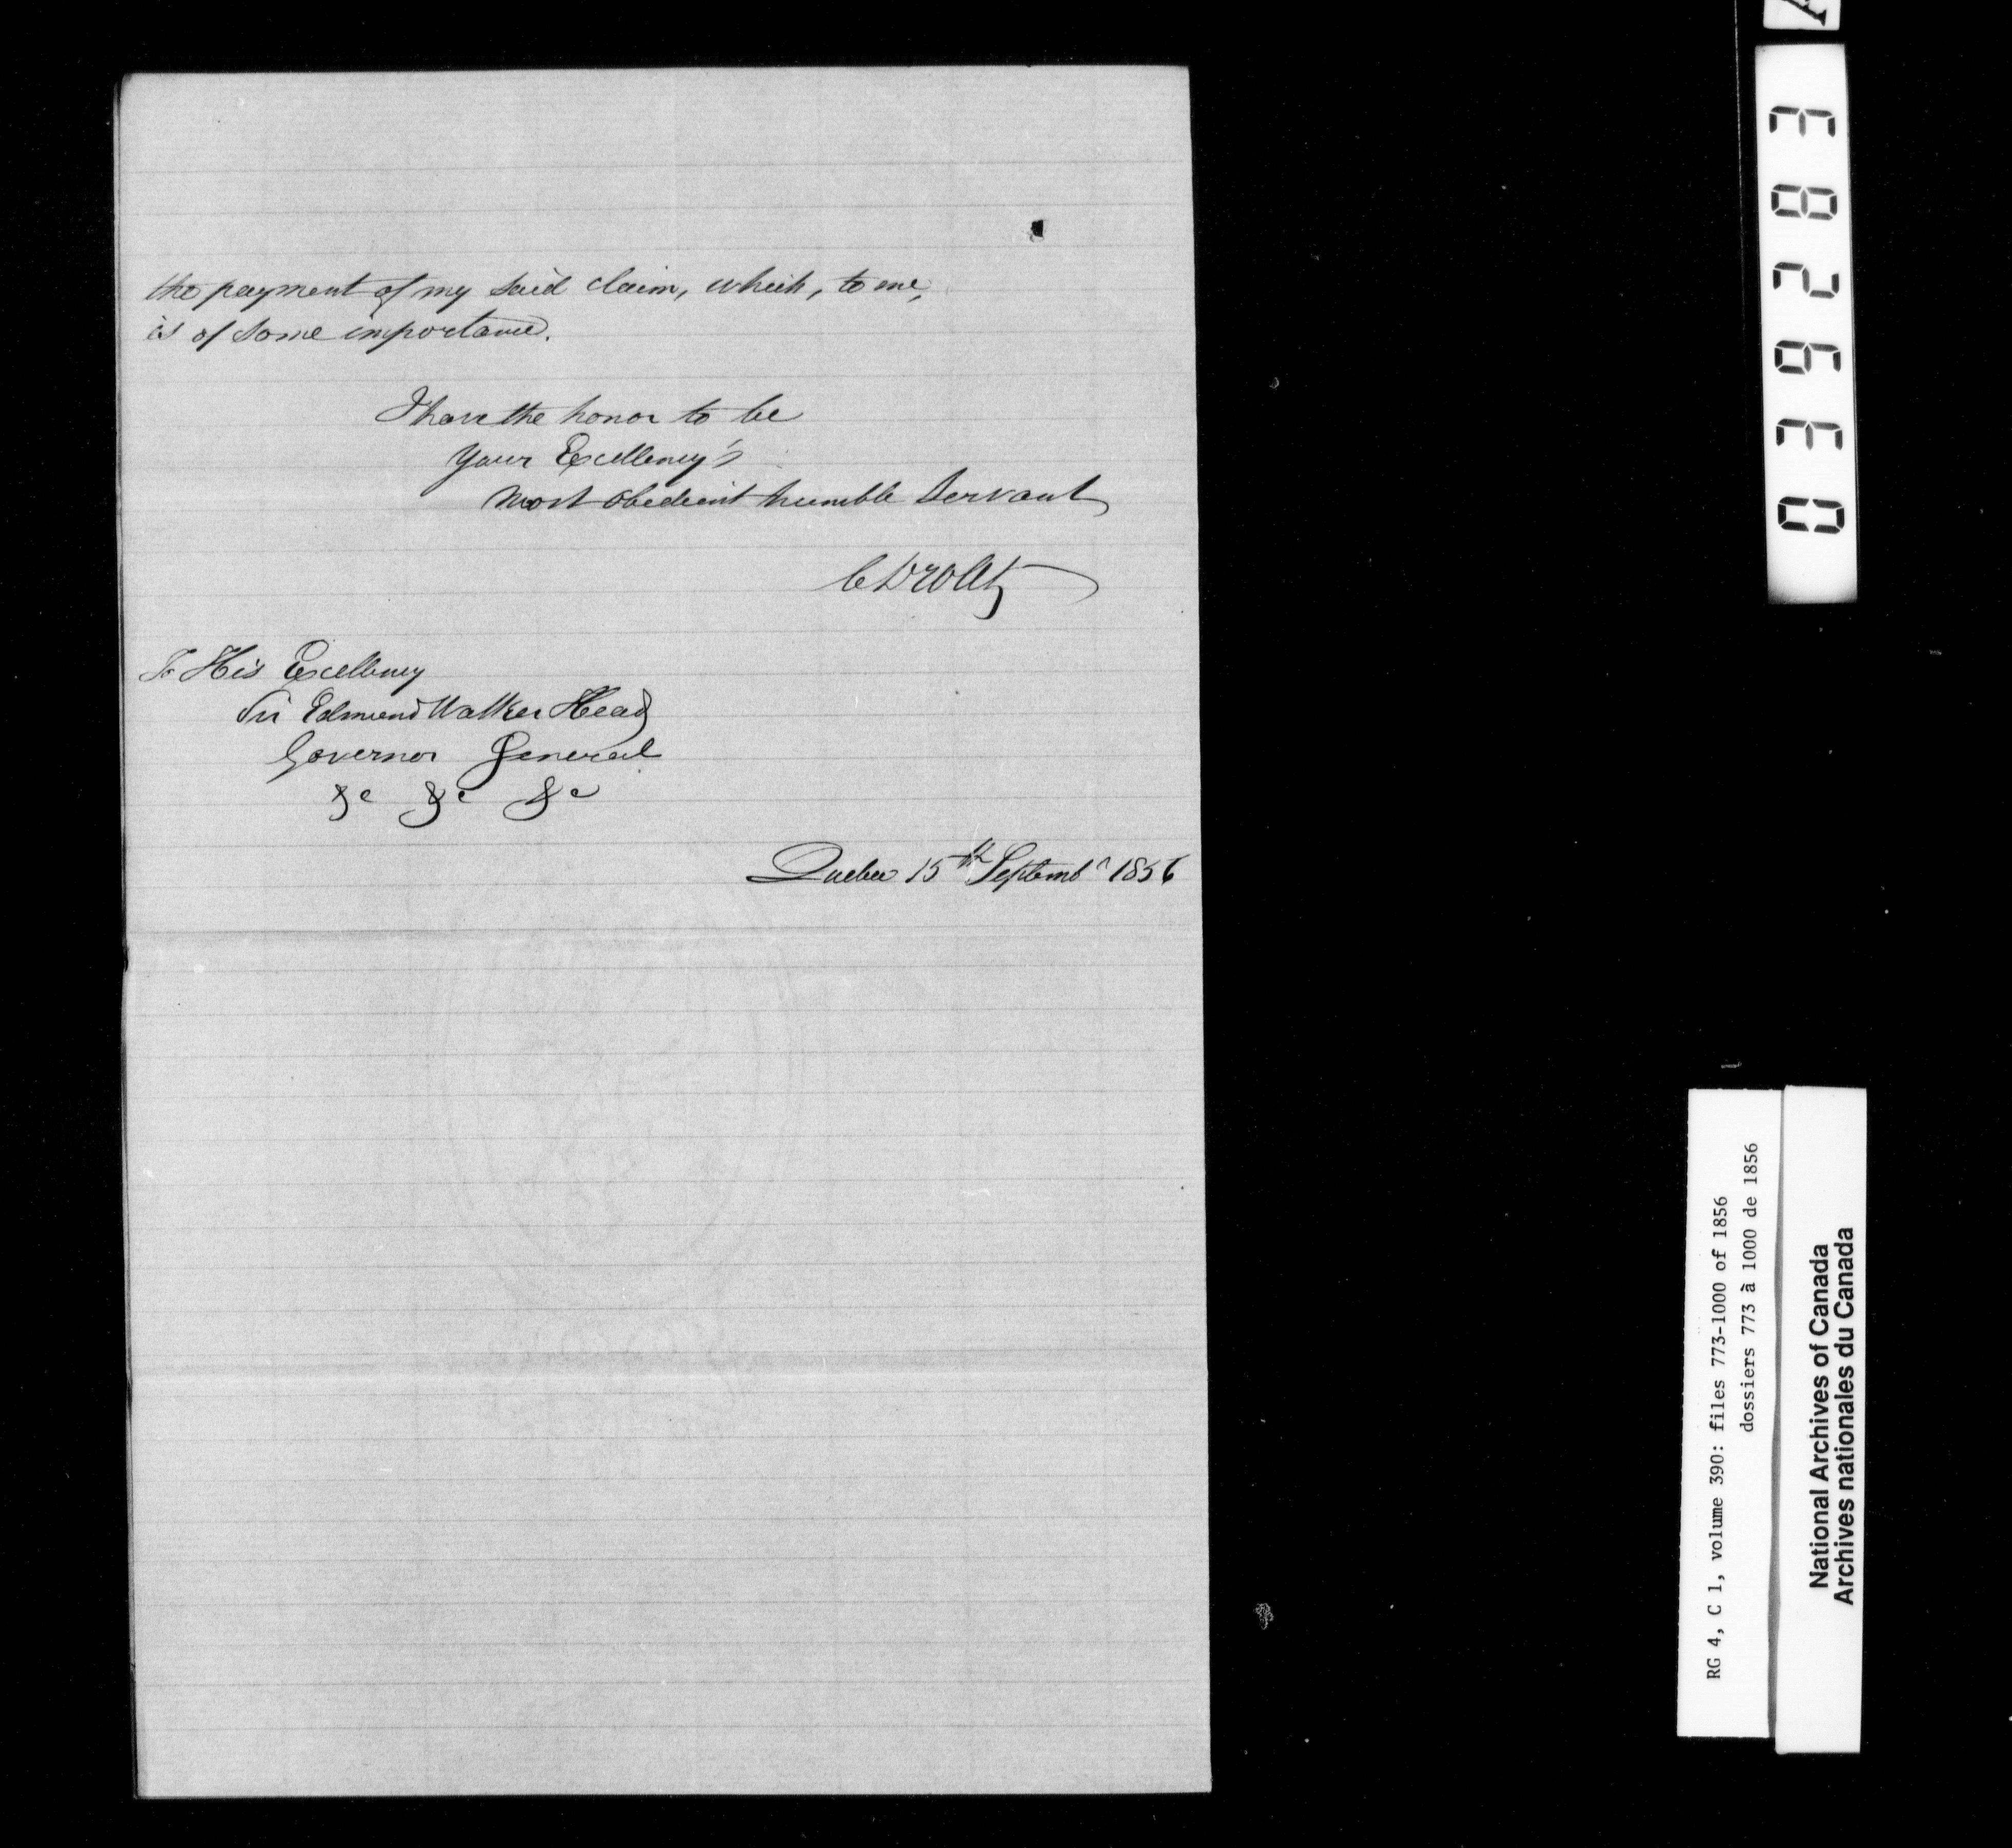 the payment of my said claim, which, to me,
is of some importance.
I have the honor to be
Your Excellency's
Most obedient humble Servant
C Drolet
To His Excellency
Sir Edmund Walker Head
Governor General
&c &c &c
Quebec 15th Septembr 1856
039283
RG 4, C 1, volume 390: files 773-1000 of 1856
dossiers 773 à 1000 de 1856
National Archives of Canada
Archives nationales du Canada